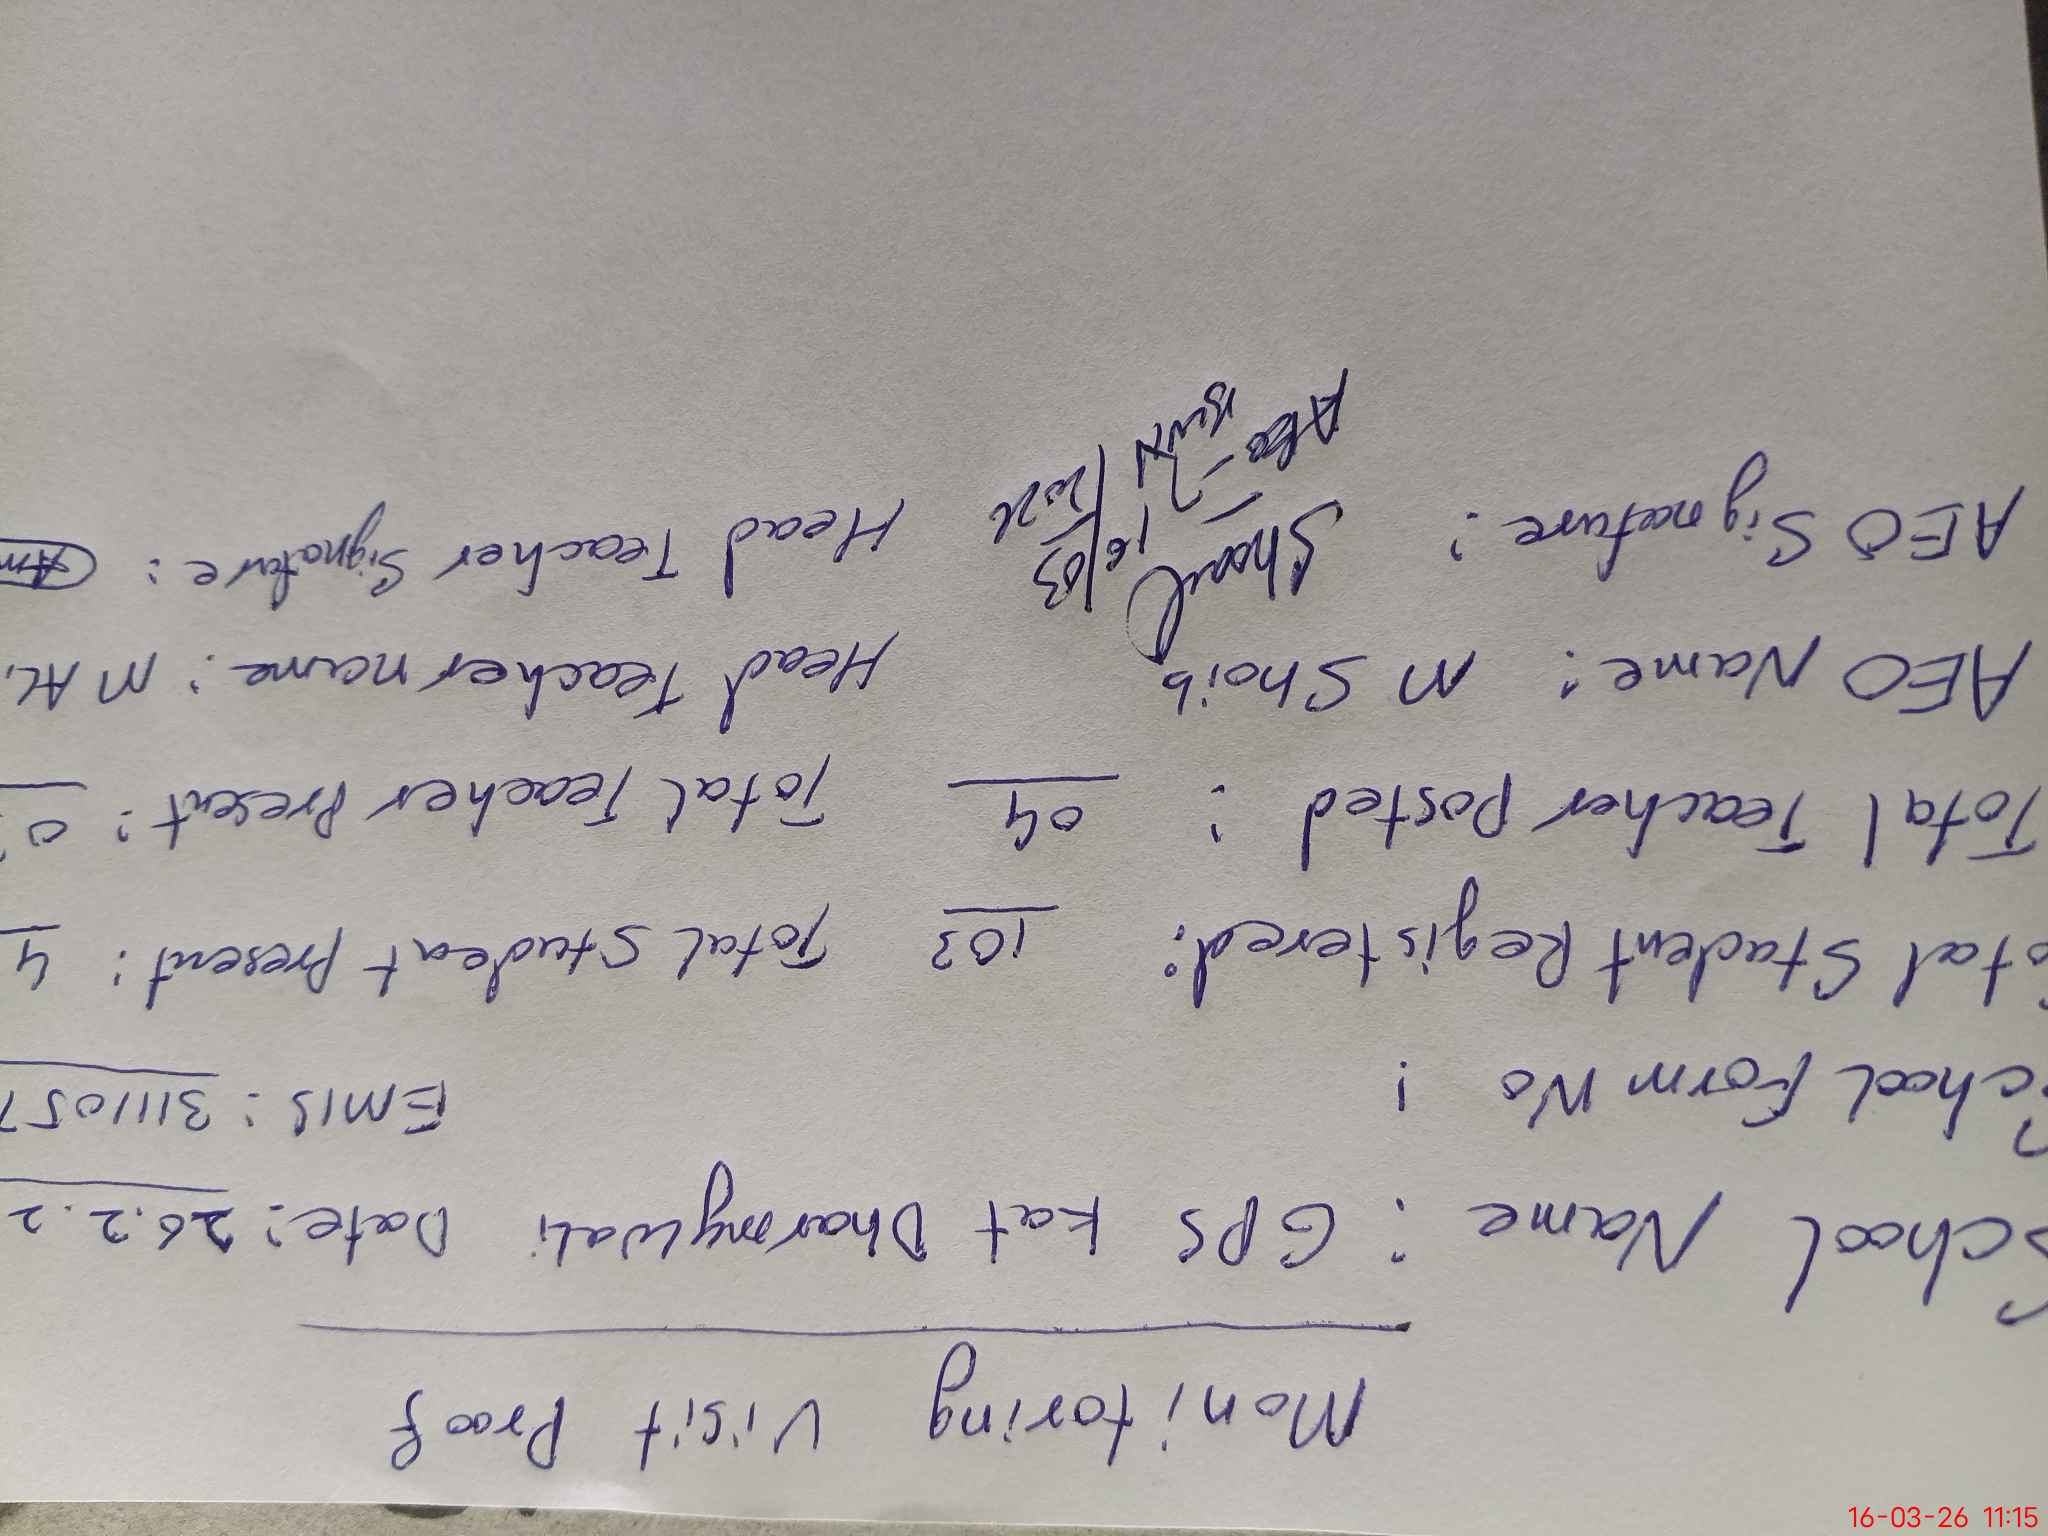 Monitoring Visit Proof
School Name : GPS Kat Dharmywali Date: 26.2.2
School Form No : EMIS : 3111057
Total Student Registered: 103 Total Student Present : 4
Total Teacher Posted : 04 Total Teacher Present : 0
AEO Name : M Shoib Head Teacher name : M
AEO Signature : Shoaib 16/03/2026 Head Teacher Signature :
AEO
16-03-26 11:15